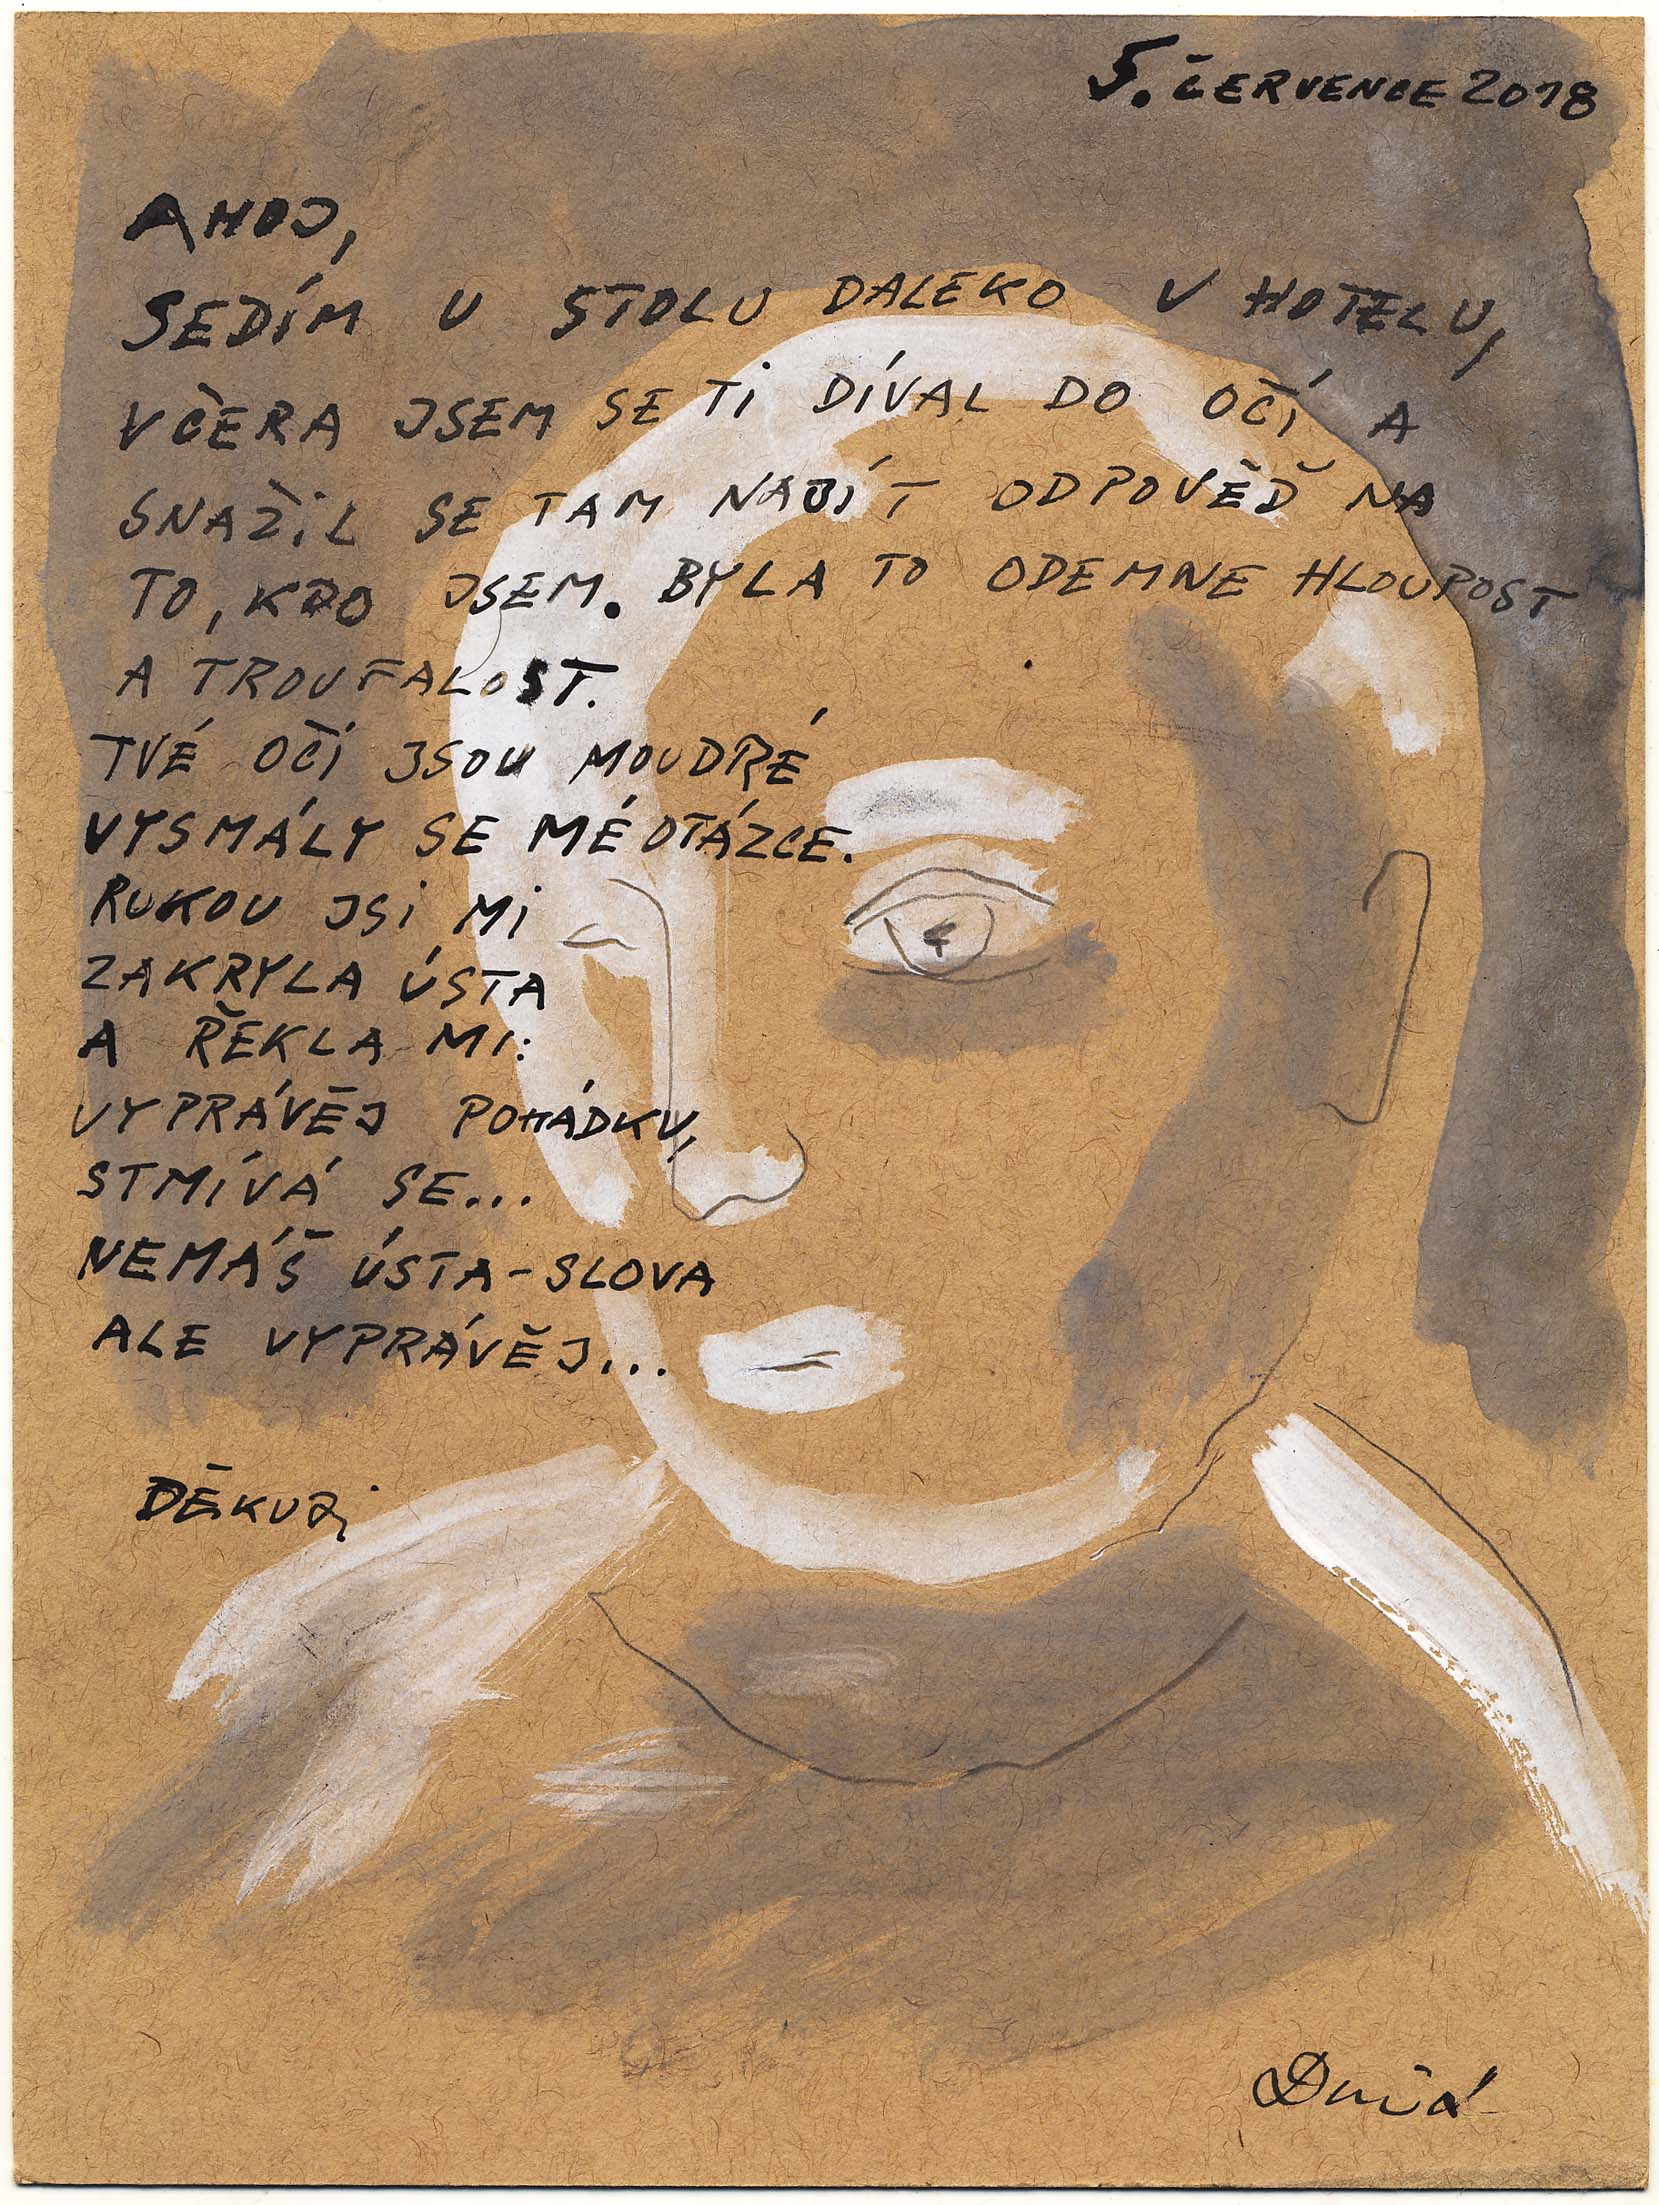 5. ČERVENCE 2018
AHOJ,
SEDÍM U STOLU DALEKO V HOTELU,
VČERA JSEM SE TI DÍVAL DO OČÍ A
SNAŽIL SE TAM NAJÍT ODPOVĚĎ NA
TO, KDO JSEM. BYLA TO ODEMNE HLOUPOST
A TROUFALOST.
TVÉ OČI JSOU MOUDRÉ
VYSMÁLY SE MÉ OTÁZCE.
RUKOU JSI MI
ZAKRYLA ÚSTA
A ŘEKLA MI:
VYPRÁVĚJ POHÁDKU,
STMÍVÁ SE...
NEMÁŠ ÚSTA-SLOVA
ALE VYPRÁVĚJ...
DĚKUJI
David